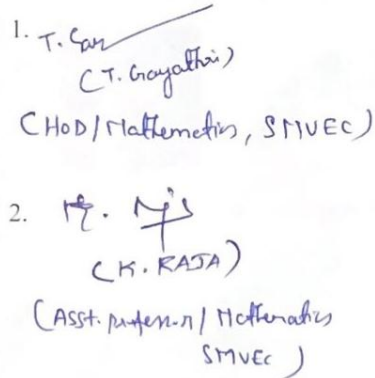 1. T. Gay
(T. Gayathri)
(HOD/Mathematics, SMVEC)
2.
(K. RAJA)
(Asst. professor/Mathematics
SMVEC)